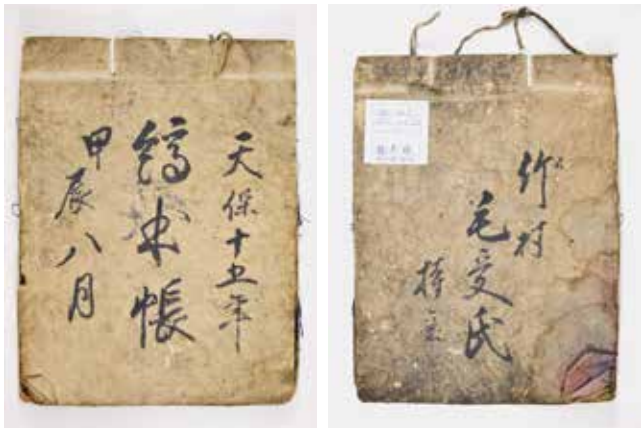 天保十五年
縞本帳
甲辰八月
竹村
毛受氏
持主